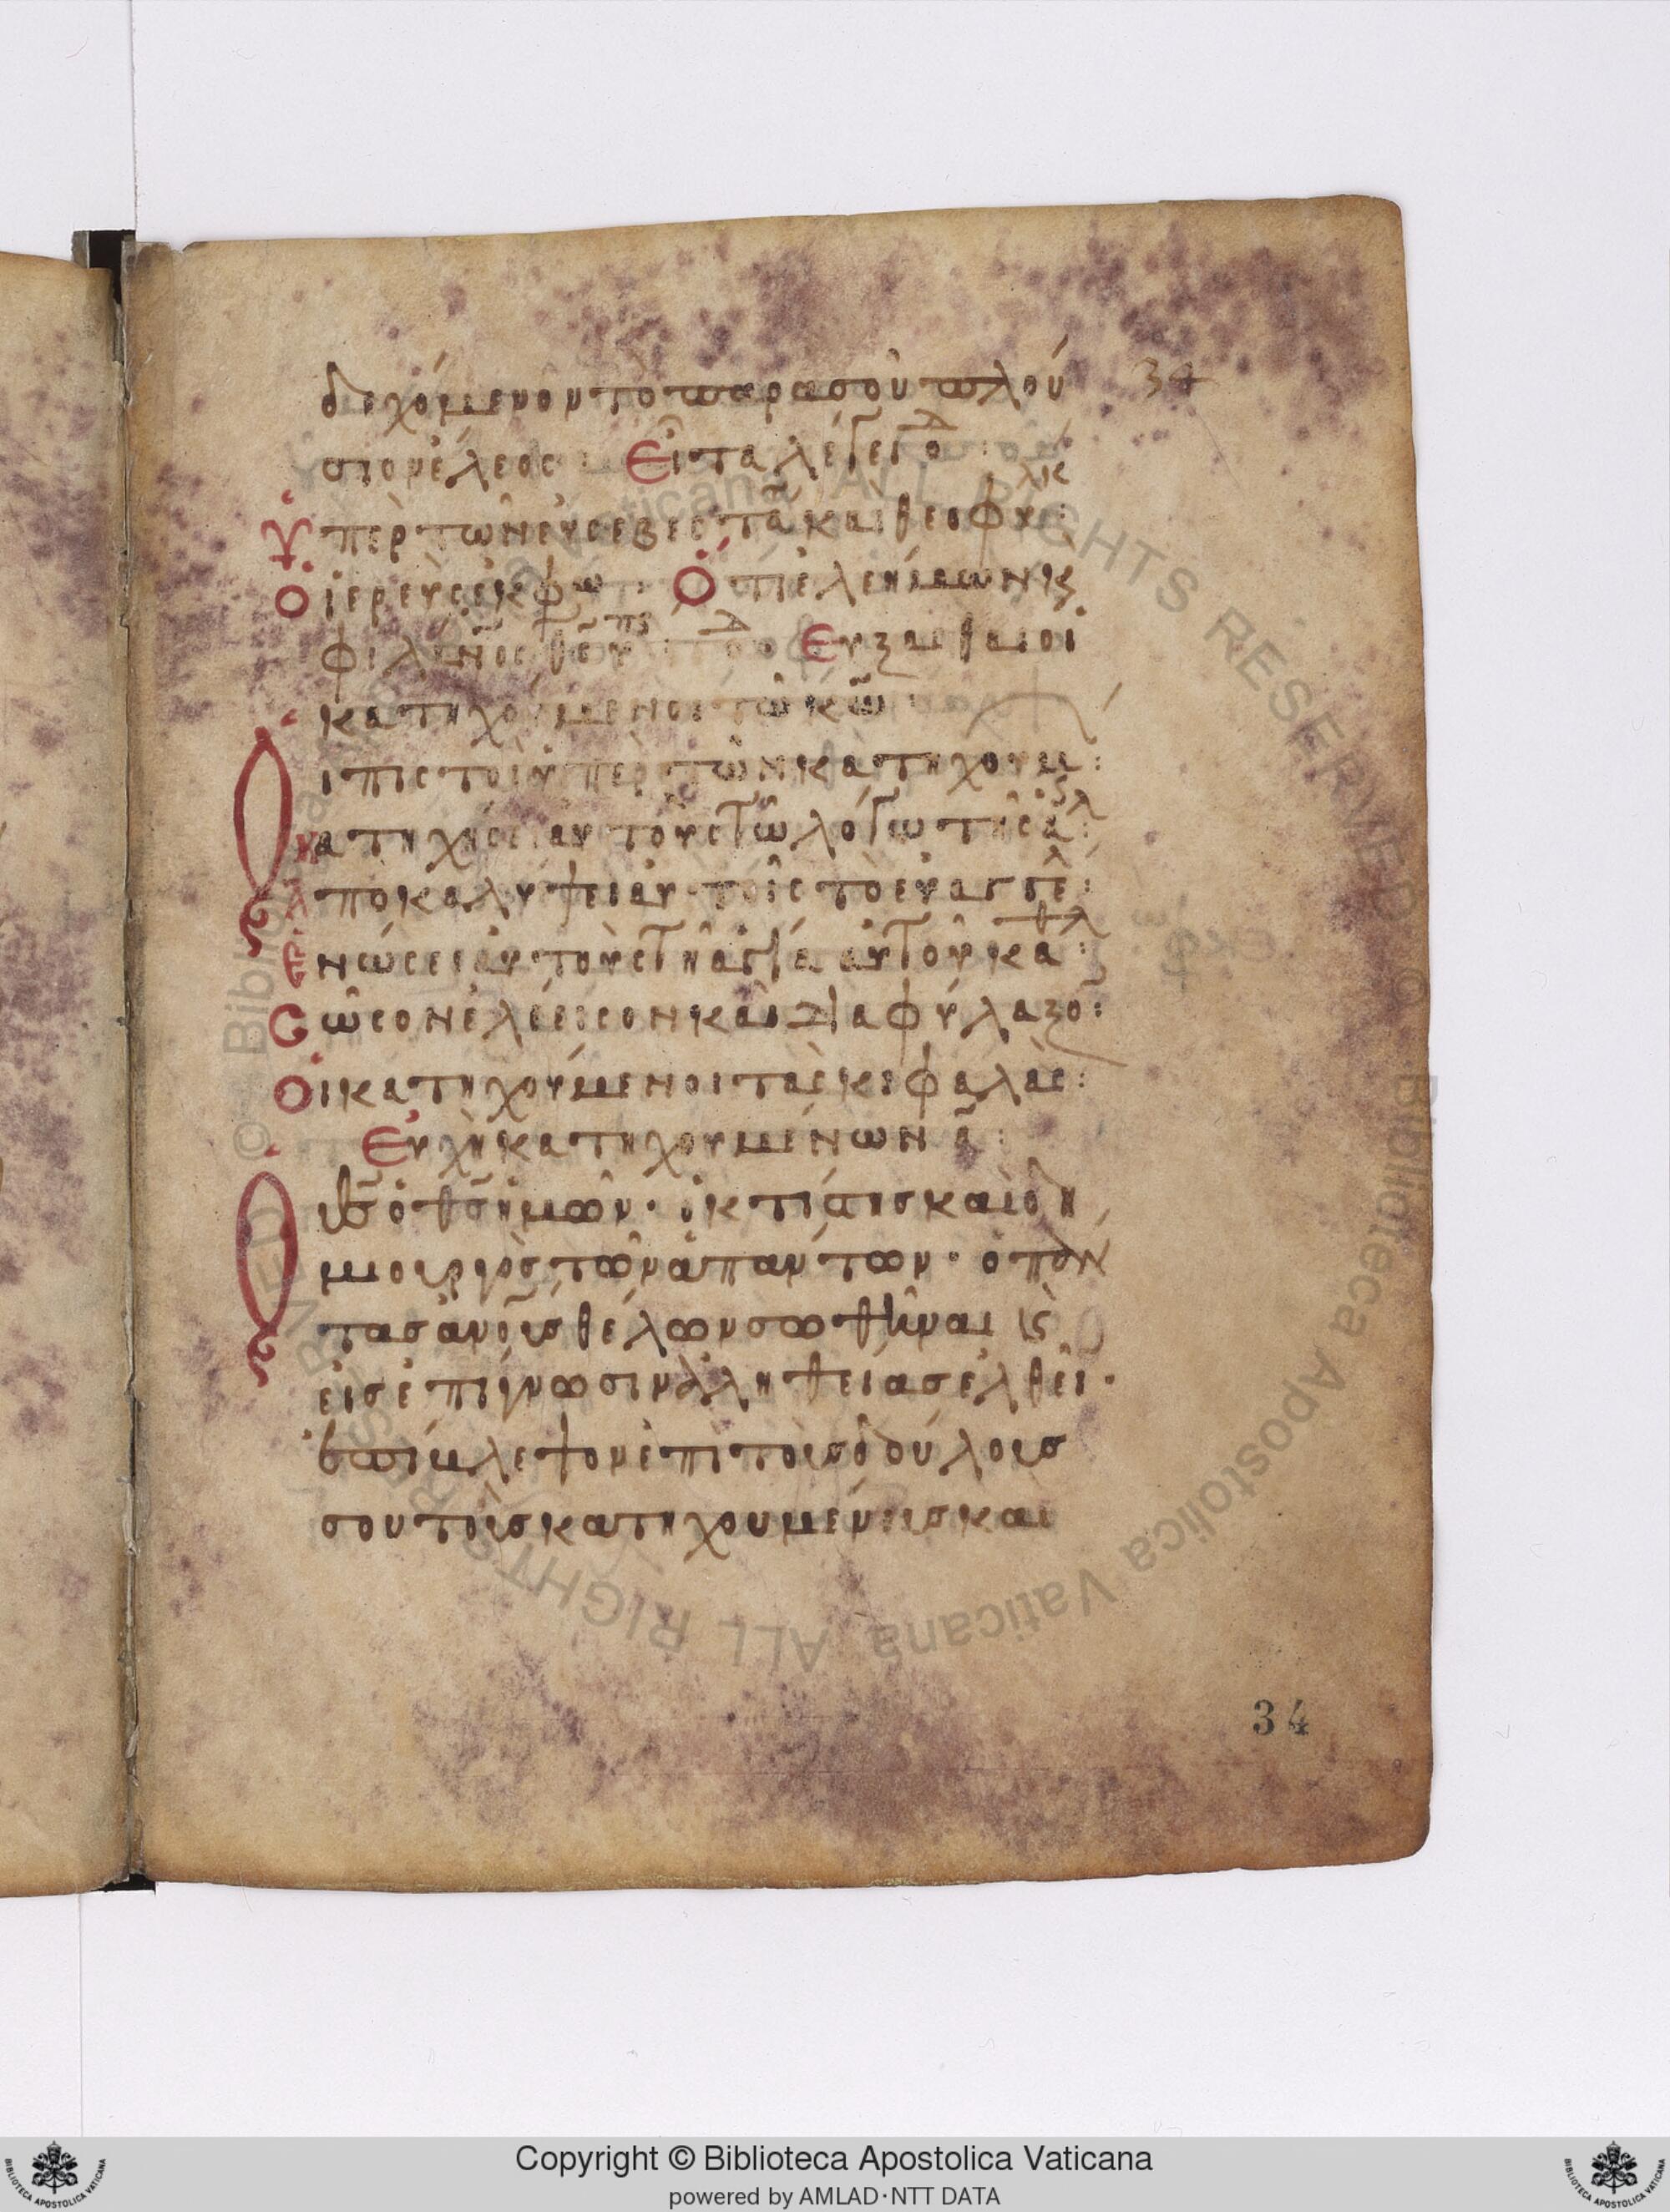 δεχόμενον το παρασοῦ πλού
σιονέλεος: Εἶτα λέγει ὁ δ
Ὑπὲρ τῶν εὐσεβεστά καὶ θεοφυλακ:
Ὁ ἱερεὺς ἐκφω: Ὅτι ἐλεήμων κς
φιλανος θε Εὔξασθαι οἱ
κατηχούμενοι τῶ κω
Οἱ πιστοὶ ὑπὲρ τῶν κατηχουμ:
Κατηχήσει αὐτοὺς τῶ λόγω τῆς αλ:
Ἀποκαλύψει αὐτοῖς τὸ εὐαγγελ:
Ἑνώσει αὐτοὺς τῆ ἁγία αὐτοῦ καθλ:
Σῶσον ἐλέεισον καὶ διαφύλαξο:
Οἱ κατηχούμενοι τὰς κεφαλὰς:
Εὐχὴ κατηχουμένων ἁ:
Ὁ θς ὁ θς ἡμῶν· ὁ κτίστης καὶ δη
μιουργὸς τῶν ἁπάντων· ὁ πάν
τας ἀνους θέλων σωθῆναι κς
εἰς ἐπίγνωσιν ἀληθείας ἐλθεῖ·
ἐπίβλεψον ἐπὶ τοὺς δούλους
σου τοὺς κατηχουμένους καὶ
34
34
Copyright © Biblioteca Apostolica Vaticana
powered by AMLAD·NTT DATA